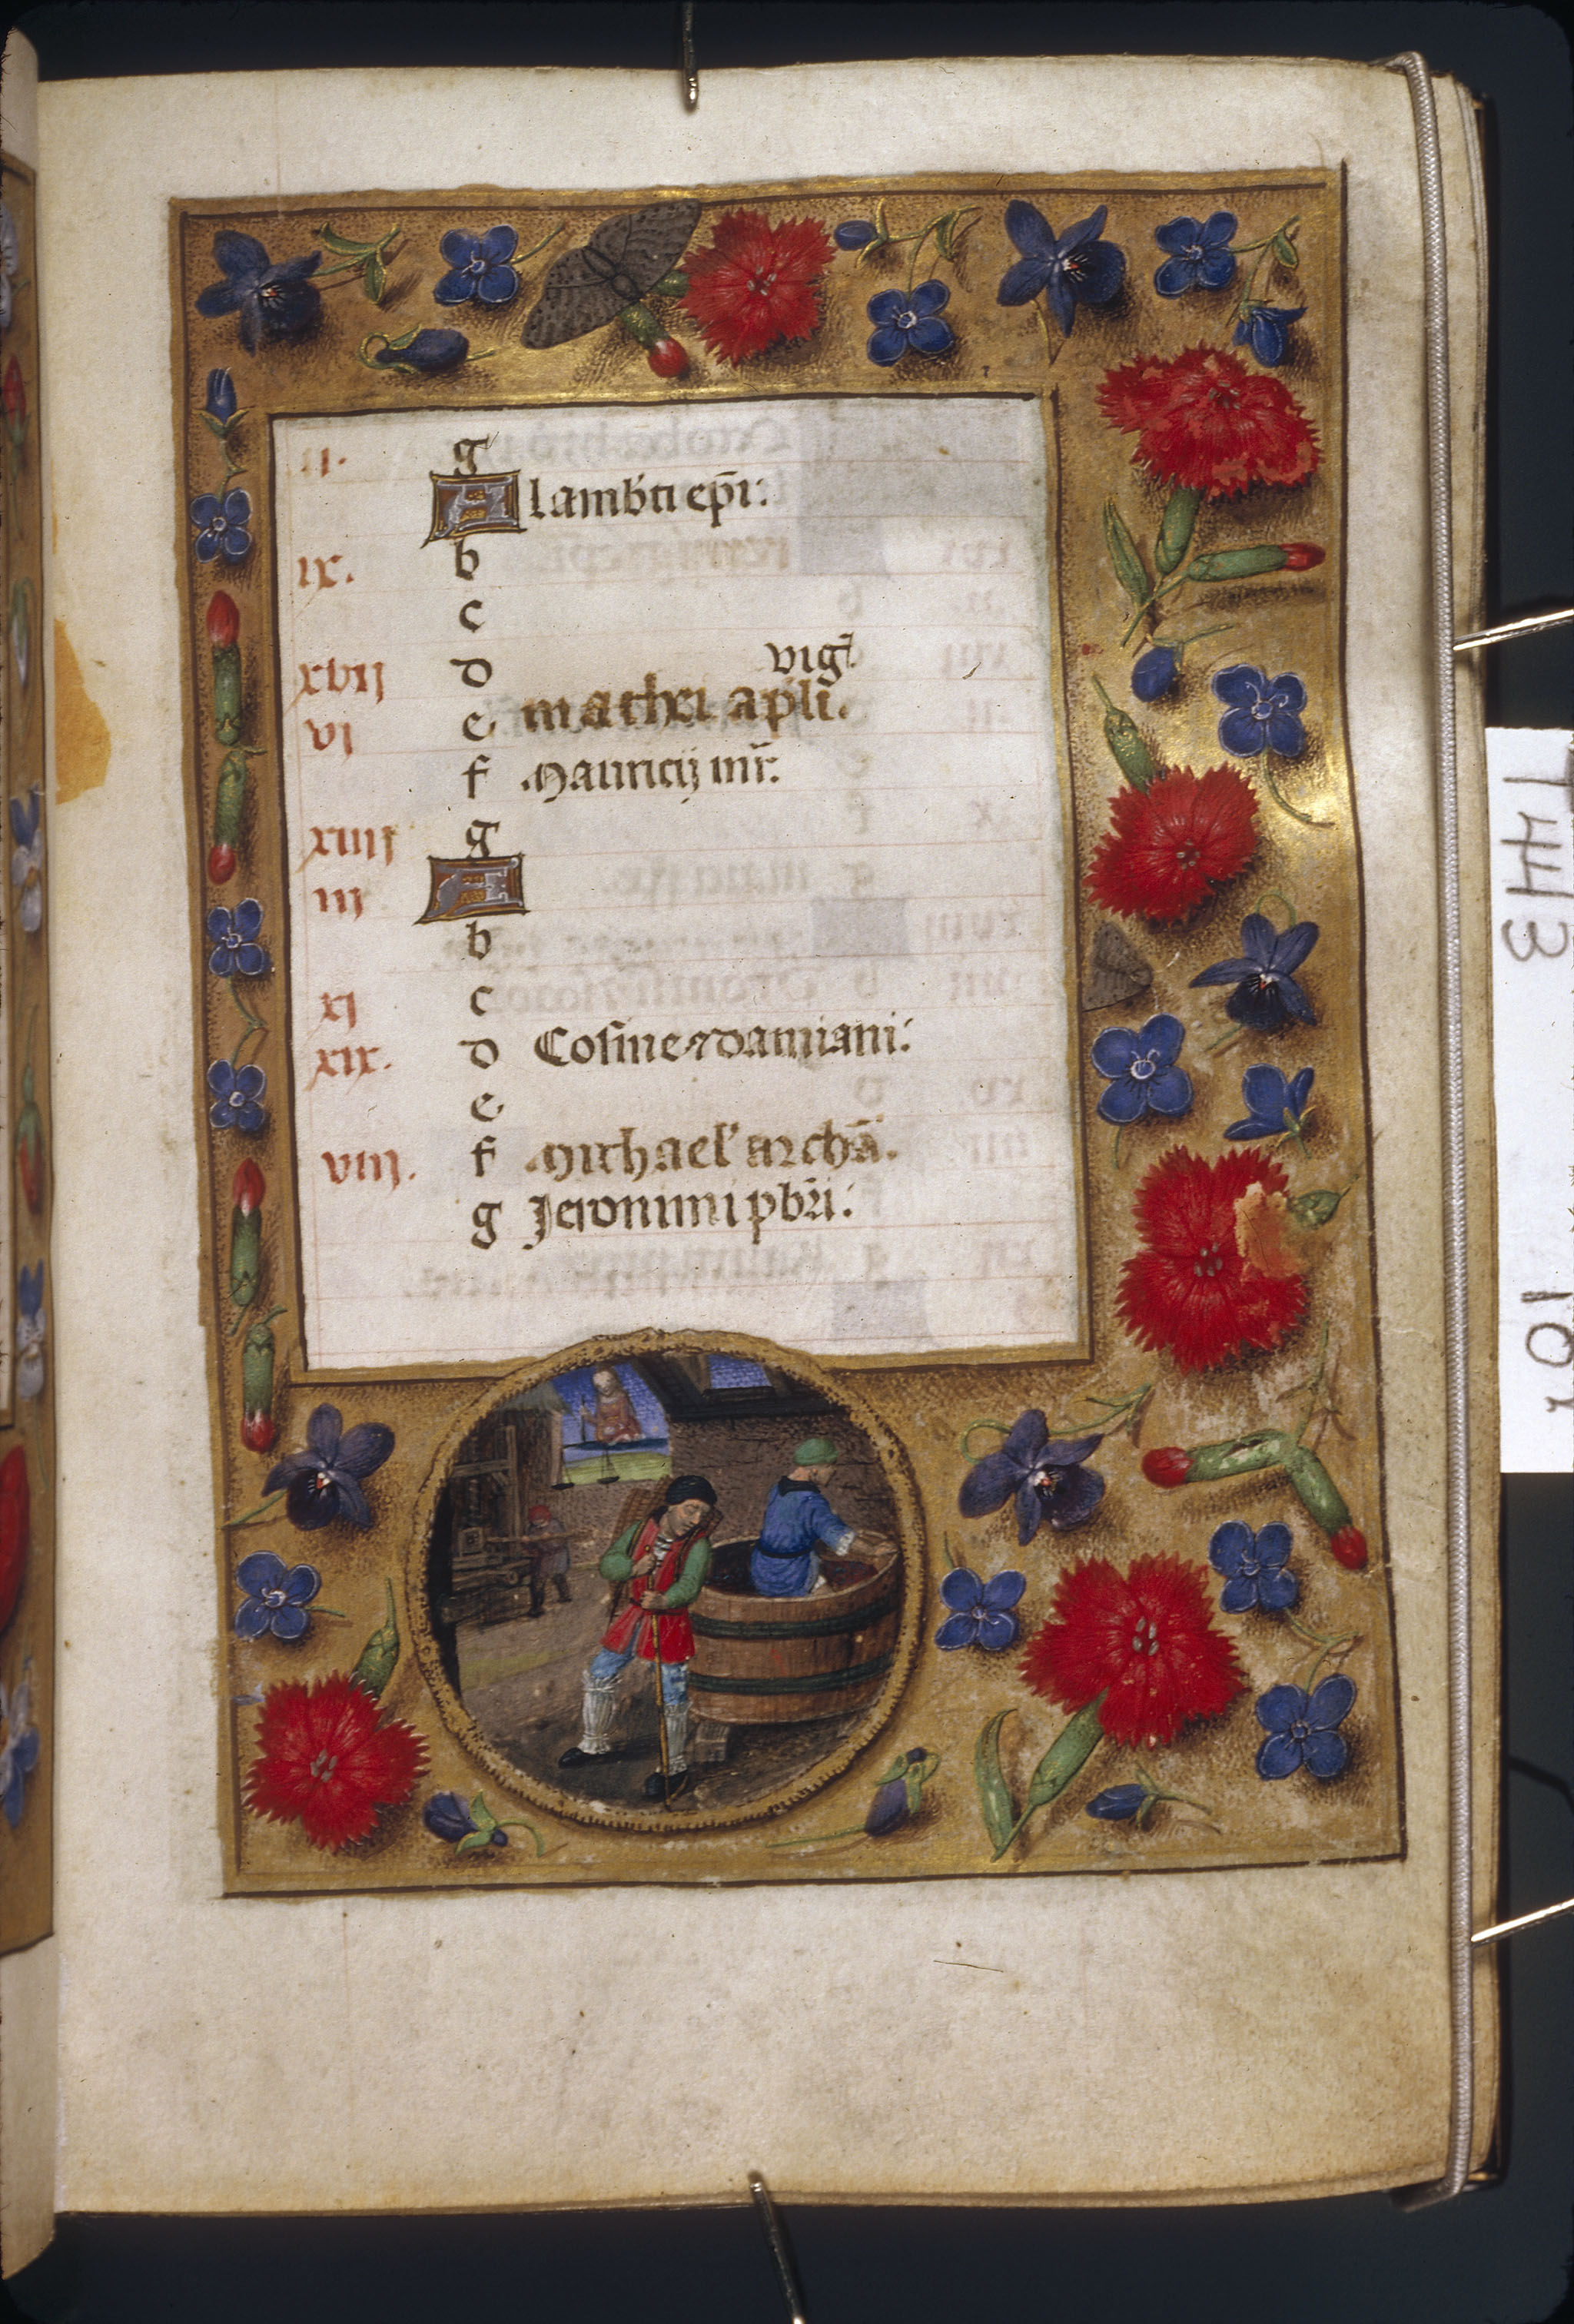 ii. g
A lamb̄ti ep̄i:
ix. b
c
xvij d vigꝉ
vj e matthei apl̄i.
f Mauricij mr̄.
xiiij g
iij A
b
xj c
xix. d Cosme ⁊ damiani:
e
viij. f Michael' archā.
g Jeronimi pb̄ri:
443
10r